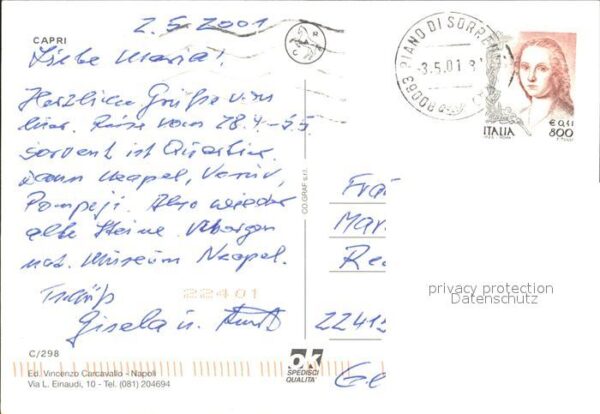 2.5.2001
CAPRI
Liebe Maria!
Herzliche Grüße von
hier. Reise vom 28.4.-5.5.
Sorrent ist Quartier,
dann Neapel, Vesuv,
Pompeji. Also wieder
alte Steine. Morgen
nat. Museum Neapel.
Tschüß
Gisela u.
22401
C/298
Ed. Vincenzo Carcavallo - Napoli
Via L. Einaudi, 10 - Tel. (081) 204694
CO.GRAF s.r.l.
ok
SPEDISCI
QUALITA'
80063 PIANO DI SORREN
-3.5.01
ITALIA
€ 0,41
800
Frä
Mar
Re
privacy protection
Datenschutz
22415
Ge